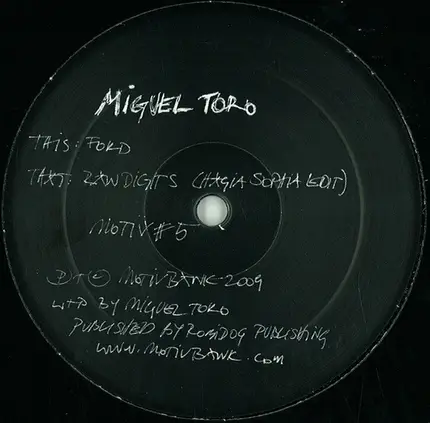 MIGUEL TORO
THIS: FORD
THAT: RAWDIGITS (HAGIA SOPHIA EDIT)
MOTIV#5
℗+© MOTIVBANK 2009
W+P BY MIGUEL TORO
PUBLISHED BY ROBIDOG PUBLISHING
WWW.MOTIVBANK.COM